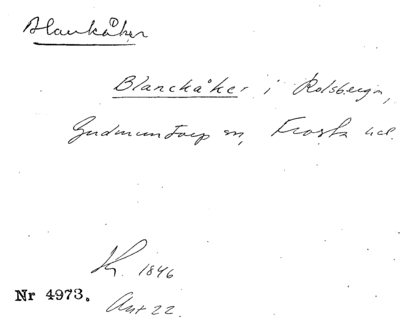 Blankåker
Blanckåker i Rolsberga,
Gudmuntorp sn, Frosta hd.
K. 1846
Nr 4973.
Ant 22.